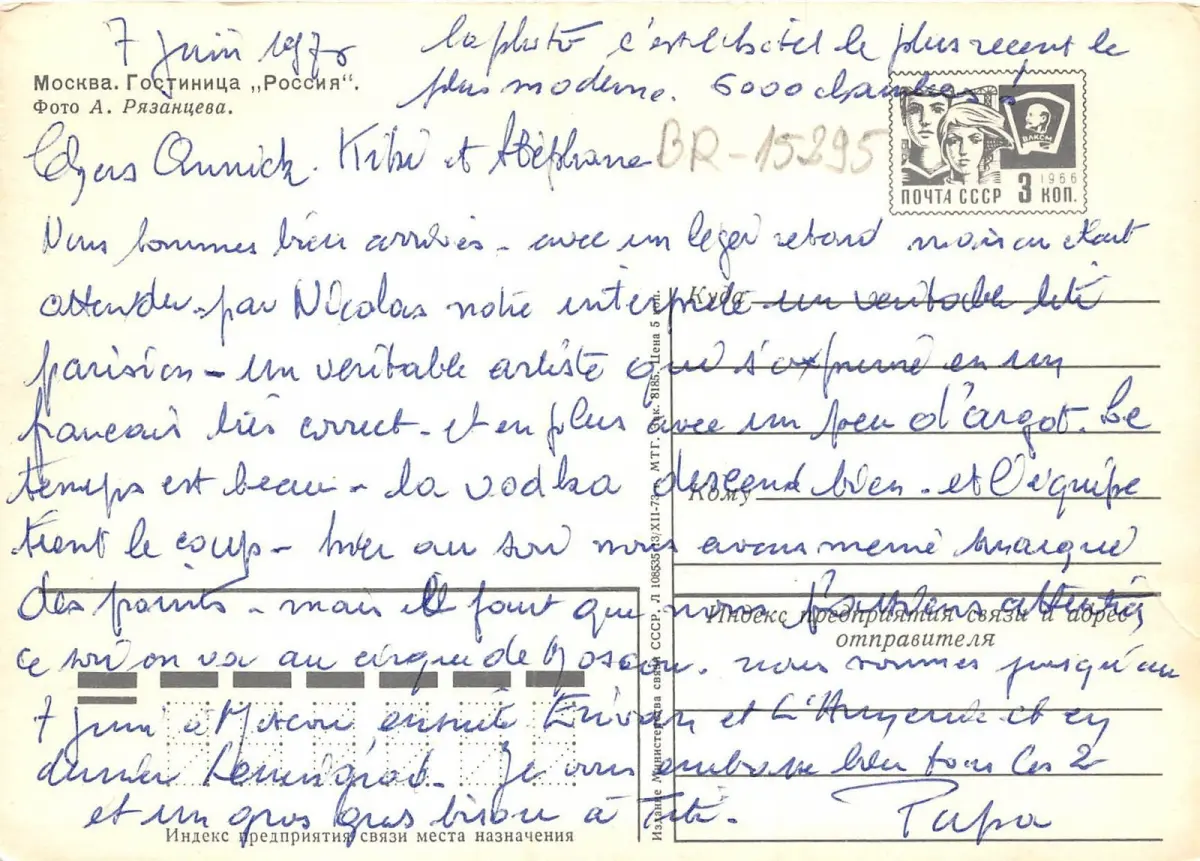 7 Juin 197
la photo c'est l'hôtel le plus recent le
plus moderne. 6000 chambres!
Москва. Гостиница „Россия".
Фото А. Рязанцева.
ВЛКСМ
1966
ПОЧТА СССР 3 КОП.
BR-15295
Chers Annick. Kiki et Stéphane
Nous sommes bien arrivés - avec un leger retard mais on était
attendu - par Nicolas notre interprete - un veritable titi
parisien - un veritable artiste qui s'exprime en un
francais très correct - et en plus avec un peu d'argot. Le
temps est beau - la vodka descend bien - et l'équipe
tient le coup - hier au soir nous avons meme marqué
des points - mais il faut que nous fassions attention
ce soir on va au cirque de Moscou. nous sommes jusqu'au
7 juin à Moscou ensuite Erivan et L'Armenie et en
dernier Leningrad. Je vous embrasse bien tous les 2
et un gros gros bisou à Titi.
Papa
Куда
Кому
Индекс предприятия связи и адрес
отправителя
Индекс предприятия связи места назначения
Издание Министерства связи СССР. Л 108535 /XII-73 МТГ. Зак. 8185. Цена 5 коп.